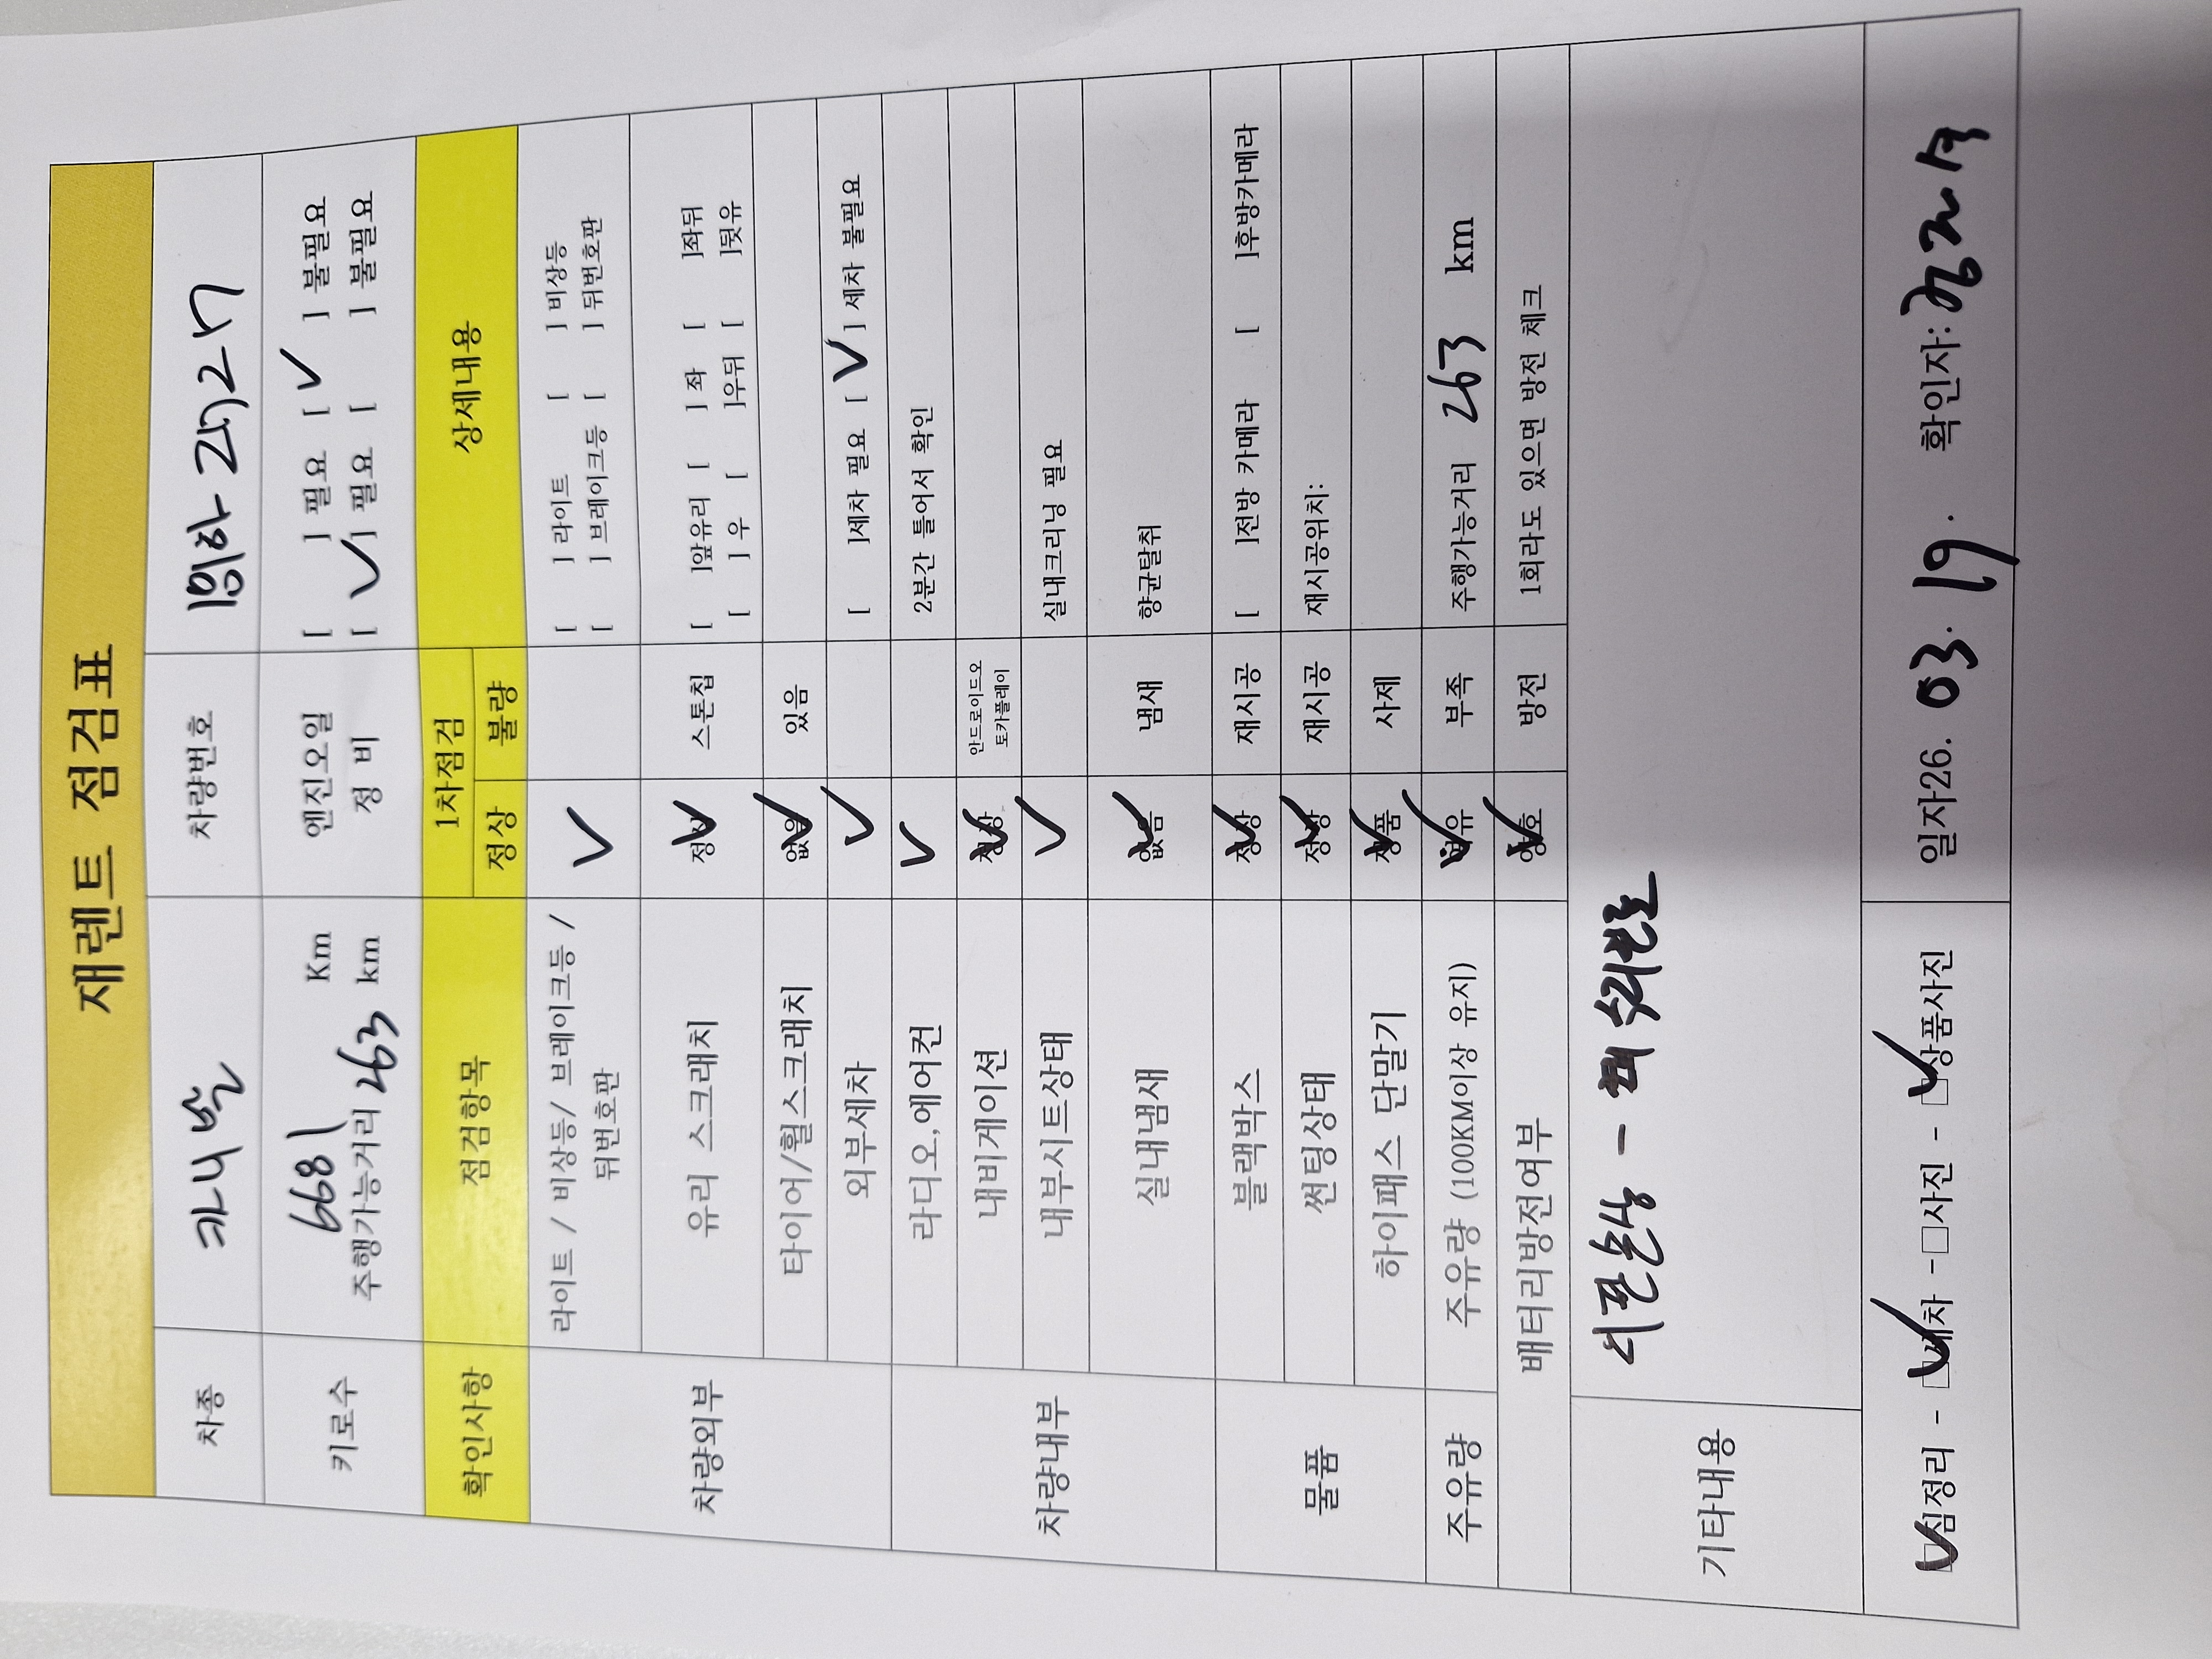 재렌트 점검표
차종 카니발 차량번호
키로수 6681 Km 엔진오일 [ ] 필요 [ V ] 불필요
주행가능거리 263 km 정 비 [ V ] 필요 [ ] 불필요
확인사항 점검항목 1차점검 상세내용
정상 불량
차량외부 라이트 / 비상등/ 브레이크등 / V [ ] 라이트 [ ] 비상등
뒤번호판 [ ] 브레이크등 [ ] 뒤번호판
유리 스크래치 정상 V 스톤칩 [ ]앞유리 [ ] 좌 [ ]좌뒤
[ ] 우 [ ]우뒤 [ ]뒷유
타이어/휠스크래치 없음 V 있음
외부세차 V [ ]세차 필요 [ V ] 세차 불필요
차량내부 라디오,에어컨 V 2분간 틀어서 확인
내비게이션 정상 V 안드로이드오
토카플레이
내부시트상태 V 실내크리닝 필요
실내냄새 없음 V 냄새 향균탈취
물품 블랙박스 정상 V 재시공 [ ]전방 카메라 [ ]후방카메라
썬팅상태 정상 V 재시공 재시공위치:
하이패스 단말기 정품 V 사제
주유량 주유량 (100KM이상 유지) V 부족 주행가능거리 263 km
배터리방전여부 양호 V 방전 1회라도 있으면 방전 체크
기타내용 손상 -
V 짐정리 - V 세차 - □사진 - V 상품사진 일자26. 03. 19. 확인자: